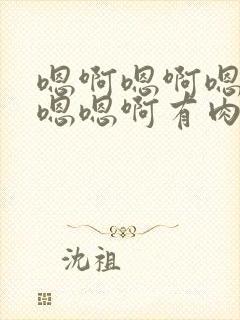 嗯啊嗯啊嗯
嗯嗯啊有肉
沈祖